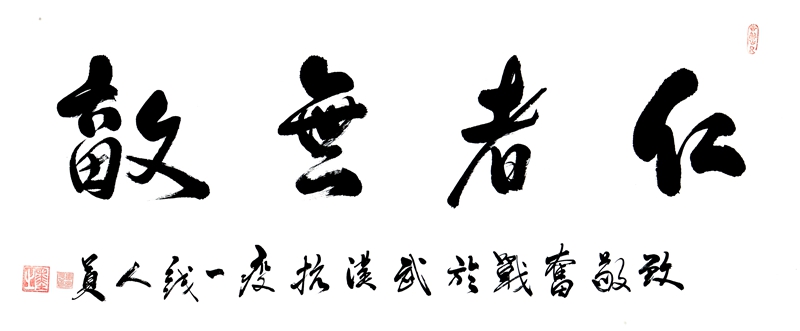 仁者無敵
致敬奮戰於武漢抗疫一綫人員